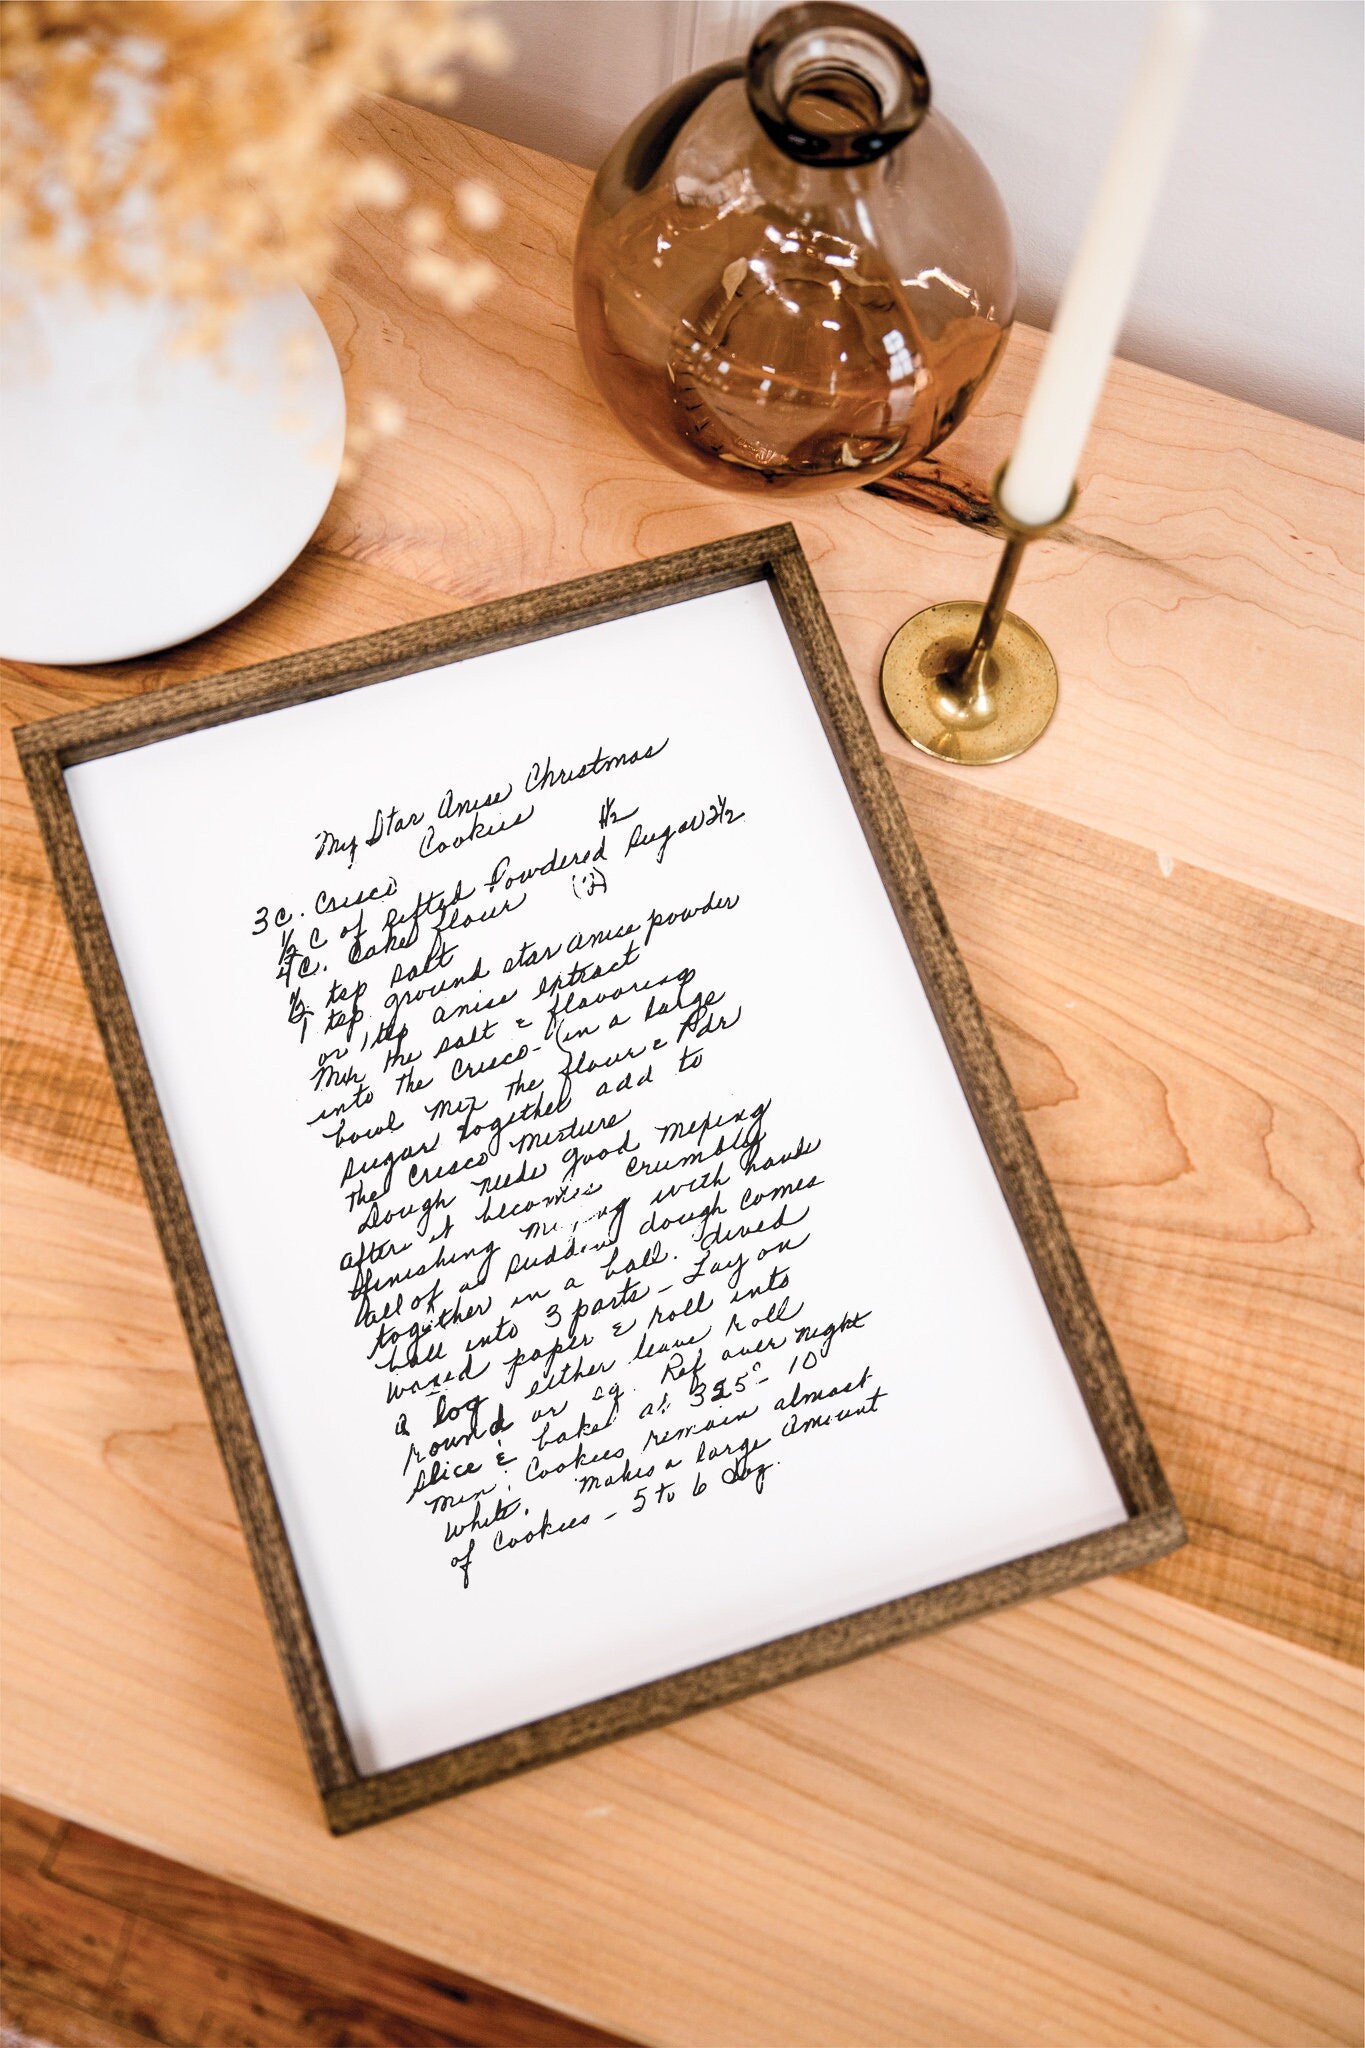 My Star Anise Christmas
Cookies 1½
3 C. Crisco
½ C of Sifted Powdered Sugar 2½
4 C. Cake flour (2)
½ tsp salt
1 tsp ground star anise powder
or 1 tsp anise extract
Mix the salt & flavoring
into the Crisco - (in a large
bowl mix the flour & Pdr
sugar together add to
the Crisco mixture
Dough needs good mixing
after it becomes crumbly
finishing mixing with hands
all of a sudden dough comes
together in a ball. Divid
ball into 3 parts - Lay on
waxed paper & roll into
a log either leave roll
round or sq. Ref over night
slice & bake at 325° - 10
Min. Cookies remain almost
white. Makes a large amount
of Cookies - 5 to 6 Doz.